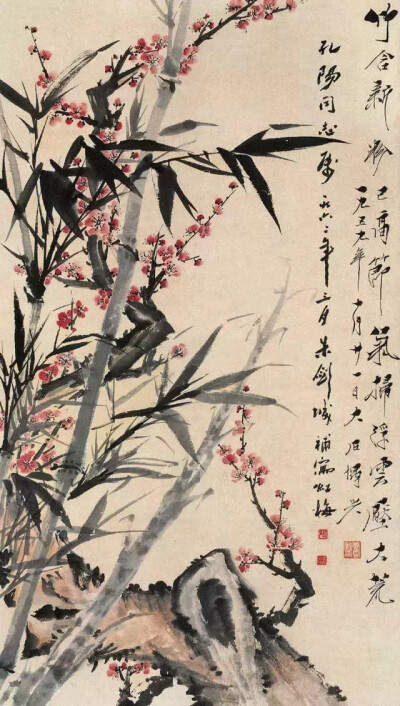 竹含新粉已高節氣掃浮雲壓大荒
一九五九年十月廿一日大石博興
孔陽同志屬一九六二年三月朱劍城補寫紅梅